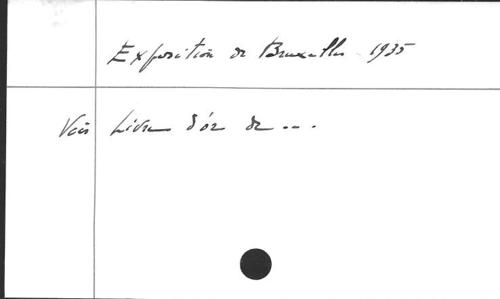 Exposition de Bruxelles 1935
Voir Livre d'or de ...